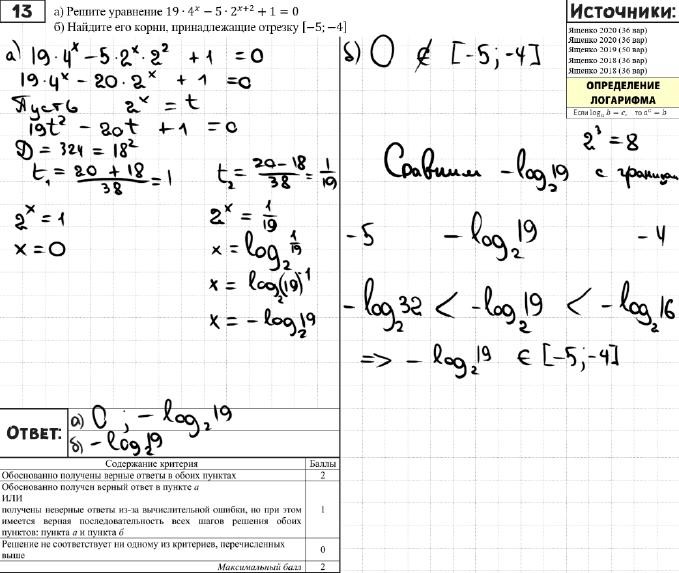 13
а) Решите уравнение 19 · 4^x − 5 · 2^{x+2} + 1 = 0
б) Найдите его корни, принадлежащие отрезку [−5; −4]
а) 19·4^x − 5·2^x·2^2 + 1 = 0
19·4^x − 20·2^x + 1 = 0
Пусть 2^x = t
19t^2 − 20t + 1 = 0
D = 324 = 18^2
t_1 = (20 + 18)/38 = 1 t_2 = (20 − 18)/38 = 1/19
2^x = 1 2^x = 1/19
x = 0 x = log_2 1/19
x = log_2 (19)^{-1}
x = − log_2 19
б) 0 ∉ [−5; −4]
2^3 = 8
Сравним − log_2 19 с границам
−5 − log_2 19 −4
− log_2 32 < − log_2 19 < − log_2 16
=> − log_2 19 ∈ [−5; −4]
Источники:
Ященко 2020 (36 вар)
Ященко 2020 (36 вар)
Ященко 2019 (50 вар)
Ященко 2018 (36 вар)
Ященко 2018 (36 вар)
ОПРЕДЕЛЕНИЕ
ЛОГАРИФМА
Если log_a b = c, то a^c = b
ОТВЕТ:
а) 0 ; − log_2 19
б) − log_2 19
Содержание критерия Баллы
Обоснованно получены верные ответы в обоих пунктах 2
Обоснованно получен верный ответ в пункте а
ИЛИ
получены неверные ответы из-за вычислительной ошибки, но при этом 1
имеется верная последовательность всех шагов решения обоих
пунктов: пункта а и пункта б
Решение не соответствует ни одному из критериев, перечисленных 0
выше
Максимальный балл 2